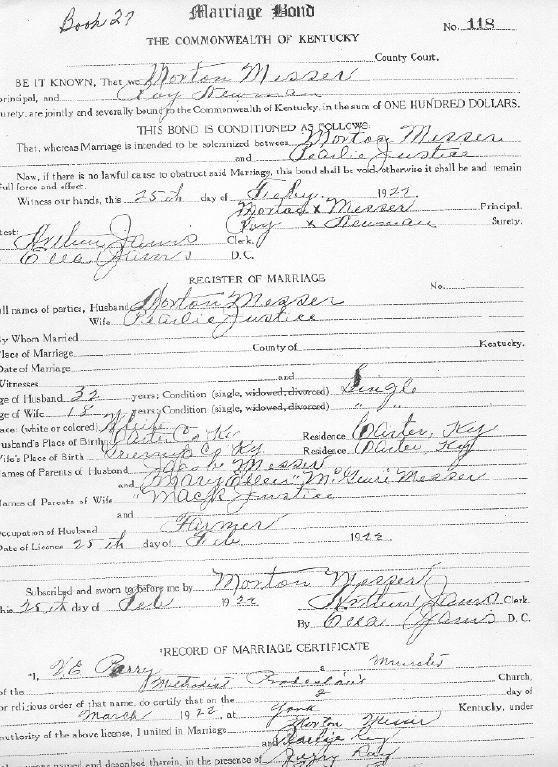 Book 27
Marriage Bond
No. 118
THE COMMONWEALTH OF KENTUCKY
County Court.
BE IT KNOWN, That we Morton Messer
principal, and Ray Newman
surety, are jointly and severally bound to the Commonwealth of Kentucky, in the sum of ONE HUNDRED DOLLARS.
THIS BOND IS CONDITIONED AS FOLLOWS:
That, whereas Marriage is intended to be solemnized between Morton Messer
and Pearlie Justice
Now, if there is no lawful cause to obstruct said Marriage, this bond shall be void, otherwise it shall be and remain
full force and effect.
Witness our hands, this 25th day of 1922
Morton x Messer Principal.
Ray x Newman Surety.
test:
Clerk.
Ella D. C.
REGISTER OF MARRIAGE
No.
ull names of parties, Husband Morton Messer
Wife Pearlie Justice
By Whom Married
Place of Marriage County of Kentucky.
Date of Marriage
Witnesses and
ge of Husband 32 years; Condition (single, widowed, divorced) Single
ge of Wife 18 years; Condition (single, widowed, divorced) " "
ace: (white or colored) White
usband's Place of Birth Carter Co Ky Residence Carter, Ky
ife's Place of Birth Greenup Co Ky Residence Carter, Ky
ames of Parents of Husband Messer
and Mary Ellen Messer
Names of Parents of Wife Mack Justice
and
Occupation of Husband Farmer
Date of Licence 25th day of Feb 1922
Subscribed and sworn to before me by Morton Messer
his 25th day of Feb 1922 Clerk
By Ella D. C.
*RECORD OF MARRIAGE CERTIFICATE
"I, V.E. Perry a Minister
of the Methodist Church,
or religious order of that name, do certify that on the 2 day of
March 1922, at Kentucky, under
authority of the above license, I united in Marriage Morton Messer
and
the persons named and described therein, in the presence of